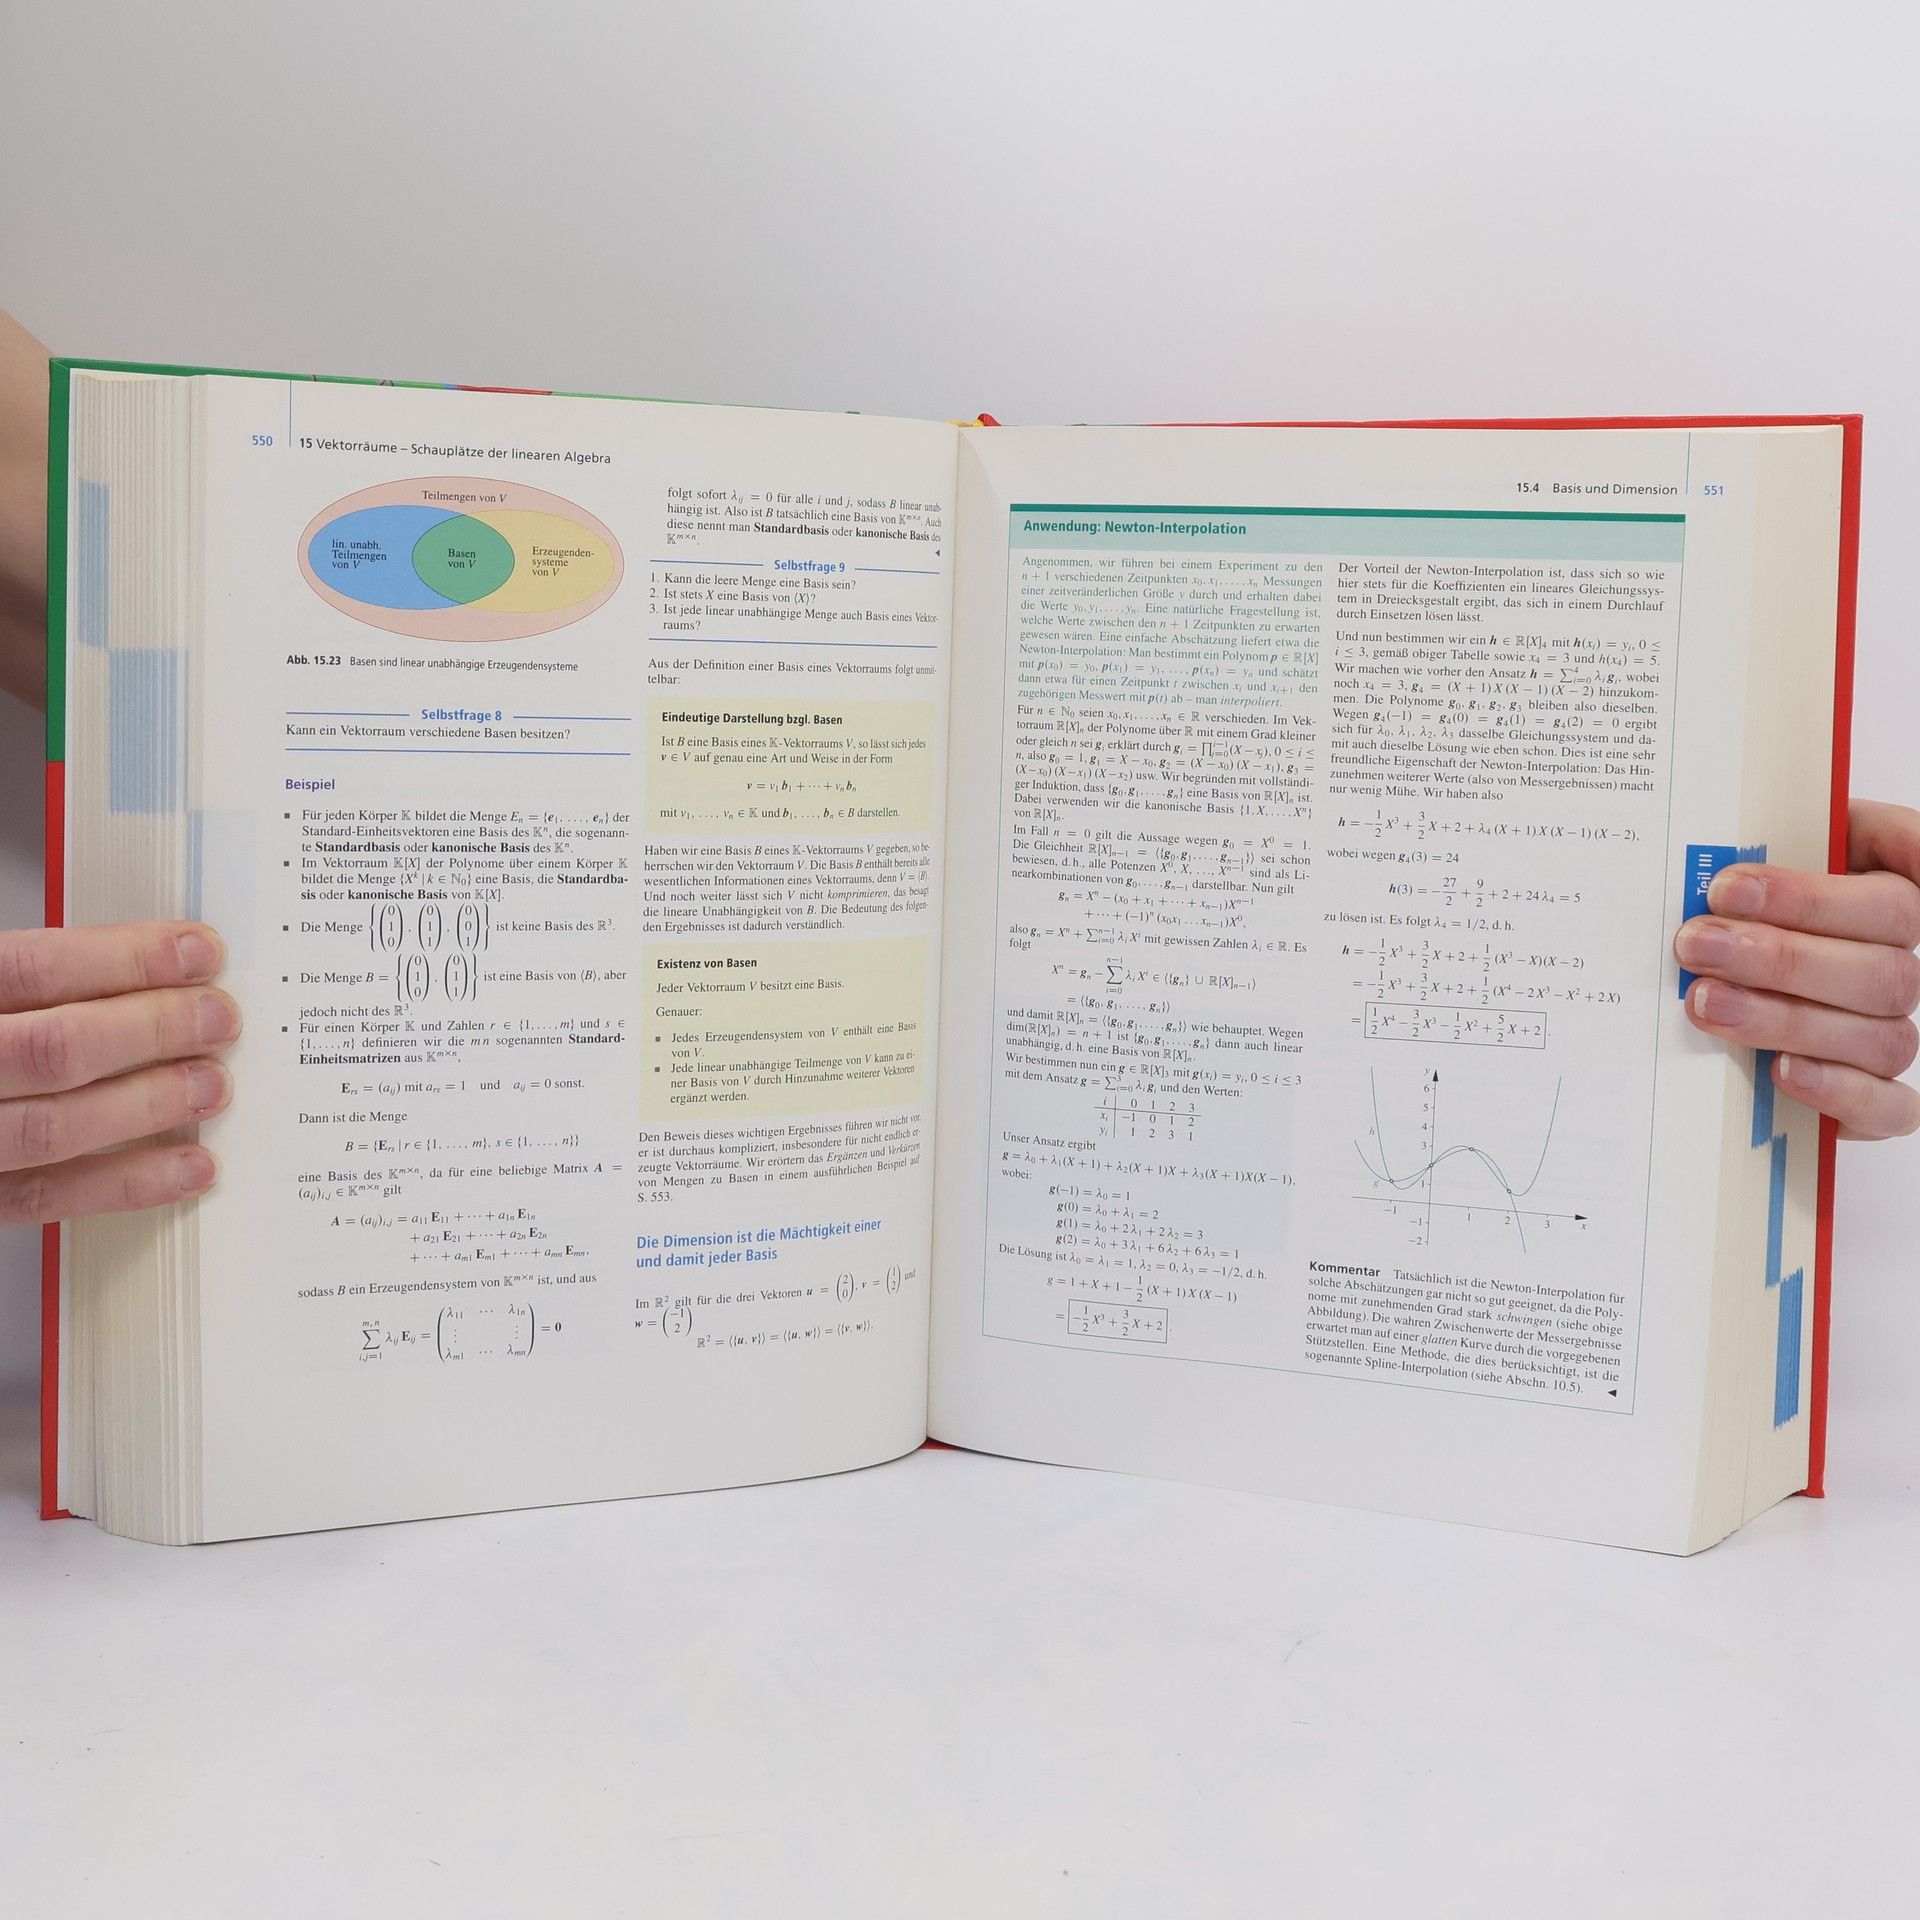 550
15 Vektorräume – Schauplätze der linearen Algebra
Teilmengen von V
lin. unabh.
Teilmengen
von V
Basen
von V
Erzeugenden-
systeme
von V
Abb. 15.23 Basen sind linear unabhängige Erzeugendensysteme
Selbstfrage 8
Kann ein Vektorraum verschiedene Basen besitzen?
Beispiel
▪ Für jeden Körper 𝕂 bildet die Menge Eₙ = {e₁, …, eₙ} der
Standard-Einheitsvektoren eine Basis des 𝕂ⁿ, die sogenann-
te Standardbasis oder kanonische Basis des 𝕂ⁿ.
▪ Im Vektorraum 𝕂[X] der Polynome über einem Körper 𝕂
bildet die Menge {Xᵏ | k ∈ ℕ₀} eine Basis, die Standardba-
sis oder kanonische Basis von 𝕂[X].
▪ Die Menge {(0 1 0), (0 1 1), (0 0 1)} ist keine Basis des ℝ³.
▪ Die Menge B = {(0 1 0), (0 1 1)} ist eine Basis von ⟨B⟩, aber
jedoch nicht des ℝ³.
▪ Für einen Körper 𝕂 und Zahlen r ∈ {1, …, m} und s ∈
{1, …, n} definieren wir die mn sogenannten Standard-
Einheitsmatrizen aus 𝕂^{m×n},
E_{rs} = (a_{ij}) mit a_{rs} = 1 und a_{ij} = 0 sonst.
Dann ist die Menge
B = {E_{rs} | r ∈ {1, …, m}, s ∈ {1, …, n}}
eine Basis des 𝕂^{m×n}, da für eine beliebige Matrix A =
(a_{ij})_{i,j} ∈ 𝕂^{m×n} gilt
A = (a_{ij})_{i,j} = a₁₁ E₁₁ + ⋯ + a_{1n} E_{1n}
+ a₂₁ E₂₁ + ⋯ + a_{2n} E_{2n}
+ ⋯ + a_{m1} E_{m1} + ⋯ + a_{mn} E_{mn},
sodass B ein Erzeugendensystem von 𝕂^{m×n} ist, und aus
∑_{i,j=1}^{m,n} λ_{ij} E_{ij} = (λ₁₁ ⋯ λ_{1n} ⋮ ⋮ λ_{m1} ⋯ λ_{mn}) = 0
folgt sofort λ_{ij} = 0 für alle i und j, sodass B linear unab-
hängig ist. Also ist B tatsächlich eine Basis von 𝕂^{m×n}. Auch
diese nennt man Standardbasis oder kanonische Basis des
𝕂^{m×n}.
Selbstfrage 9
1. Kann die leere Menge eine Basis sein?
2. Ist stets X eine Basis von ⟨X⟩?
3. Ist jede linear unabhängige Menge auch Basis eines Vektor-
raums?
Aus der Definition einer Basis eines Vektorraums folgt unmit-
telbar:
Eindeutige Darstellung bzgl. Basen
Ist B eine Basis eines 𝕂-Vektorraums V, so lässt sich jedes
v ∈ V auf genau eine Art und Weise in der Form
v = v₁ b₁ + ⋯ + vₙ bₙ
mit v₁, …, vₙ ∈ 𝕂 und b₁, …, bₙ ∈ B darstellen.
Haben wir eine Basis B eines 𝕂-Vektorraums V gegeben, so be-
herrschen wir den Vektorraum V. Die Basis B enthält bereits alle
wesentlichen Informationen eines Vektorraums, denn V = ⟨B⟩.
Und noch weiter lässt sich V nicht komprimieren, das besagt
die lineare Unabhängigkeit von B. Die Bedeutung des folgen-
den Ergebnisses ist dadurch verständlich.
Existenz von Basen
Jeder Vektorraum V besitzt eine Basis.
Genauer:
▪ Jedes Erzeugendensystem von V enthält eine Basis
von V.
▪ Jede linear unabhängige Teilmenge von V kann zu ei-
ner Basis von V durch Hinzunahme weiterer Vektoren
ergänzt werden.
Den Beweis dieses wichtigen Ergebnisses führen wir nicht vor,
er ist durchaus kompliziert, insbesondere für nicht endlich er-
zeugte Vektorräume. Wir erörtern das Ergänzen und Verkürzen
von Mengen zu Basen in einem ausführlichen Beispiel auf
S. 553.
Die Dimension ist die Mächtigkeit einer
und damit jeder Basis
Im ℝ² gilt für die drei Vektoren u = (2 0), v = (1 2) und
w = (−1 2)
ℝ² = ⟨{u, v}⟩ = ⟨{u, w}⟩ = ⟨{v, w}⟩.
15.4 Basis und Dimension
551
Anwendung: Newton-Interpolation
Angenommen, wir führen bei einem Experiment zu den
n + 1 verschiedenen Zeitpunkten x₀, x₁, …, xₙ Messungen
einer zeitveränderlichen Größe y durch und erhalten dabei
die Werte y₀, y₁, …, yₙ. Eine natürliche Fragestellung ist,
welche Werte zwischen den n + 1 Zeitpunkten zu erwarten
gewesen wären. Eine einfache Abschätzung liefert etwa die
Newton-Interpolation: Man bestimmt ein Polynom p ∈ ℝ[X]
mit p(x₀) = y₀, p(x₁) = y₁, …, p(xₙ) = yₙ und schätzt
dann etwa für einen Zeitpunkt t zwischen xᵢ und xᵢ₊₁ den
zugehörigen Messwert mit p(t) ab – man interpoliert.
Für n ∈ ℕ₀ seien x₀, x₁, …, xₙ ∈ ℝ verschieden. Im Vek-
torraum ℝ[X]ₙ der Polynome über ℝ mit einem Grad kleiner
oder gleich n sei gᵢ erklärt durch gᵢ = ∏_{j=0}^{i−1}(X − xⱼ), 0 ≤ i ≤
n, also g₀ = 1, g₁ = X − x₀, g₂ = (X − x₀) (X − x₁), g₃ =
(X−x₀) (X−x₁) (X−x₂) usw. Wir begründen mit vollständi-
ger Induktion, dass {g₀, g₁, …, gₙ} eine Basis von ℝ[X]ₙ ist.
Dabei verwenden wir die kanonische Basis {1, X, …, Xⁿ}
von ℝ[X]ₙ.
Im Fall n = 0 gilt die Aussage wegen g₀ = X⁰ = 1.
Die Gleichheit ℝ[X]ₙ₋₁ = ⟨{g₀, g₁, …, gₙ₋₁}⟩ sei schon
bewiesen, d. h., alle Potenzen X⁰, X, …, Xⁿ⁻¹ sind als Li-
nearkombinationen von g₀, …, gₙ₋₁ darstellbar. Nun gilt
gₙ = Xⁿ − (x₀ + x₁ + ⋯ + xₙ₋₁)Xⁿ⁻¹
+ ⋯ + (−1)ⁿ (x₀x₁ … xₙ₋₁)X⁰,
also gₙ = Xⁿ + ∑_{i=0}^{n−1} λᵢ Xⁱ mit gewissen Zahlen λᵢ ∈ ℝ. Es
folgt
Xⁿ = gₙ − ∑_{i=0}^{n−1} λᵢ Xⁱ ∈ ⟨{gₙ} ∪ ℝ[X]ₙ₋₁⟩
= ⟨{g₀, g₁, …, gₙ}⟩
und damit ℝ[X]ₙ = ⟨{g₀, g₁, …, gₙ}⟩ wie behauptet. Wegen
dim(ℝ[X]ₙ) = n + 1 ist {g₀, g₁, …, gₙ} dann auch linear
unabhängig, d. h. eine Basis von ℝ[X]ₙ.
Wir bestimmen nun ein g ∈ ℝ[X]₃ mit g(xᵢ) = yᵢ, 0 ≤ i ≤ 3
mit dem Ansatz g = ∑_{i=0}^{3} λᵢ gᵢ und den Werten:
i 0 1 2 3
xᵢ −1 0 1 2
yᵢ 1 2 3 1
Unser Ansatz ergibt
g = λ₀ + λ₁(X + 1) + λ₂(X + 1)X + λ₃(X + 1)X(X − 1),
wobei:
g(−1) = λ₀ = 1
g(0) = λ₀ + λ₁ = 2
g(1) = λ₀ + 2λ₁ + 2λ₂ = 3
g(2) = λ₀ + 3λ₁ + 6λ₂ + 6λ₃ = 1
Die Lösung ist λ₀ = λ₁ = 1, λ₂ = 0, λ₃ = −1/2, d. h.
g = 1 + X + 1 − 1/2 (X + 1) X (X − 1)
= −1/2 X³ + 3/2 X + 2.
Der Vorteil der Newton-Interpolation ist, dass sich so wie
hier stets für die Koeffizienten ein lineares Gleichungssys-
tem in Dreiecksgestalt ergibt, das sich in einem Durchlauf
durch Einsetzen lösen lässt.
Und nun bestimmen wir ein h ∈ ℝ[X]₄ mit h(xᵢ) = yᵢ, 0 ≤
i ≤ 3, gemäß obiger Tabelle sowie x₄ = 3 und h(x₄) = 5.
Wir machen wie vorher den Ansatz h = ∑_{i=0}^{4} λᵢ gᵢ, wobei
noch x₄ = 3, g₄ = (X + 1) X (X − 1) (X − 2) hinzukom-
men. Die Polynome g₀, g₁, g₂, g₃ bleiben also dieselben.
Wegen g₄(−1) = g₄(0) = g₄(1) = g₄(2) = 0 ergibt
sich für λ₀, λ₁, λ₂, λ₃ dasselbe Gleichungssystem und da-
mit auch dieselbe Lösung wie eben schon. Dies ist eine sehr
freundliche Eigenschaft der Newton-Interpolation: Das Hin-
zunehmen weiterer Werte (also von Messergebnissen) macht
nur wenig Mühe. Wir haben also
h = −1/2 X³ + 3/2 X + 2 + λ₄ (X + 1) X (X − 1) (X − 2),
wobei wegen g₄(3) = 24
h(3) = −27/2 + 9/2 + 2 + 24 λ₄ = 5
zu lösen ist. Es folgt λ₄ = 1/2, d. h.
h = −1/2 X³ + 3/2 X + 2 + 1/2 (X³ − X)(X − 2)
= −1/2 X³ + 3/2 X + 2 + 1/2 (X⁴ − 2X³ − X² + 2X)
= 1/2 X⁴ − 3/2 X³ − 1/2 X² + 5/2 X + 2.
y
6
5
4
3
h
g
1
−1
1
2
3
x
−1
−2
Kommentar Tatsächlich ist die Newton-Interpolation für
solche Abschätzungen gar nicht so gut geeignet, da die Poly-
nome mit zunehmenden Grad stark schwingen (siehe obige
Abbildung). Die wahren Zwischenwerte der Messergebnisse
erwartet man auf einer glatten Kurve durch die vorgegebenen
Stützstellen. Eine Methode, die dies berücksichtigt, ist die
sogenannte Spline-Interpolation (siehe Abschn. 10.5).
Teil III